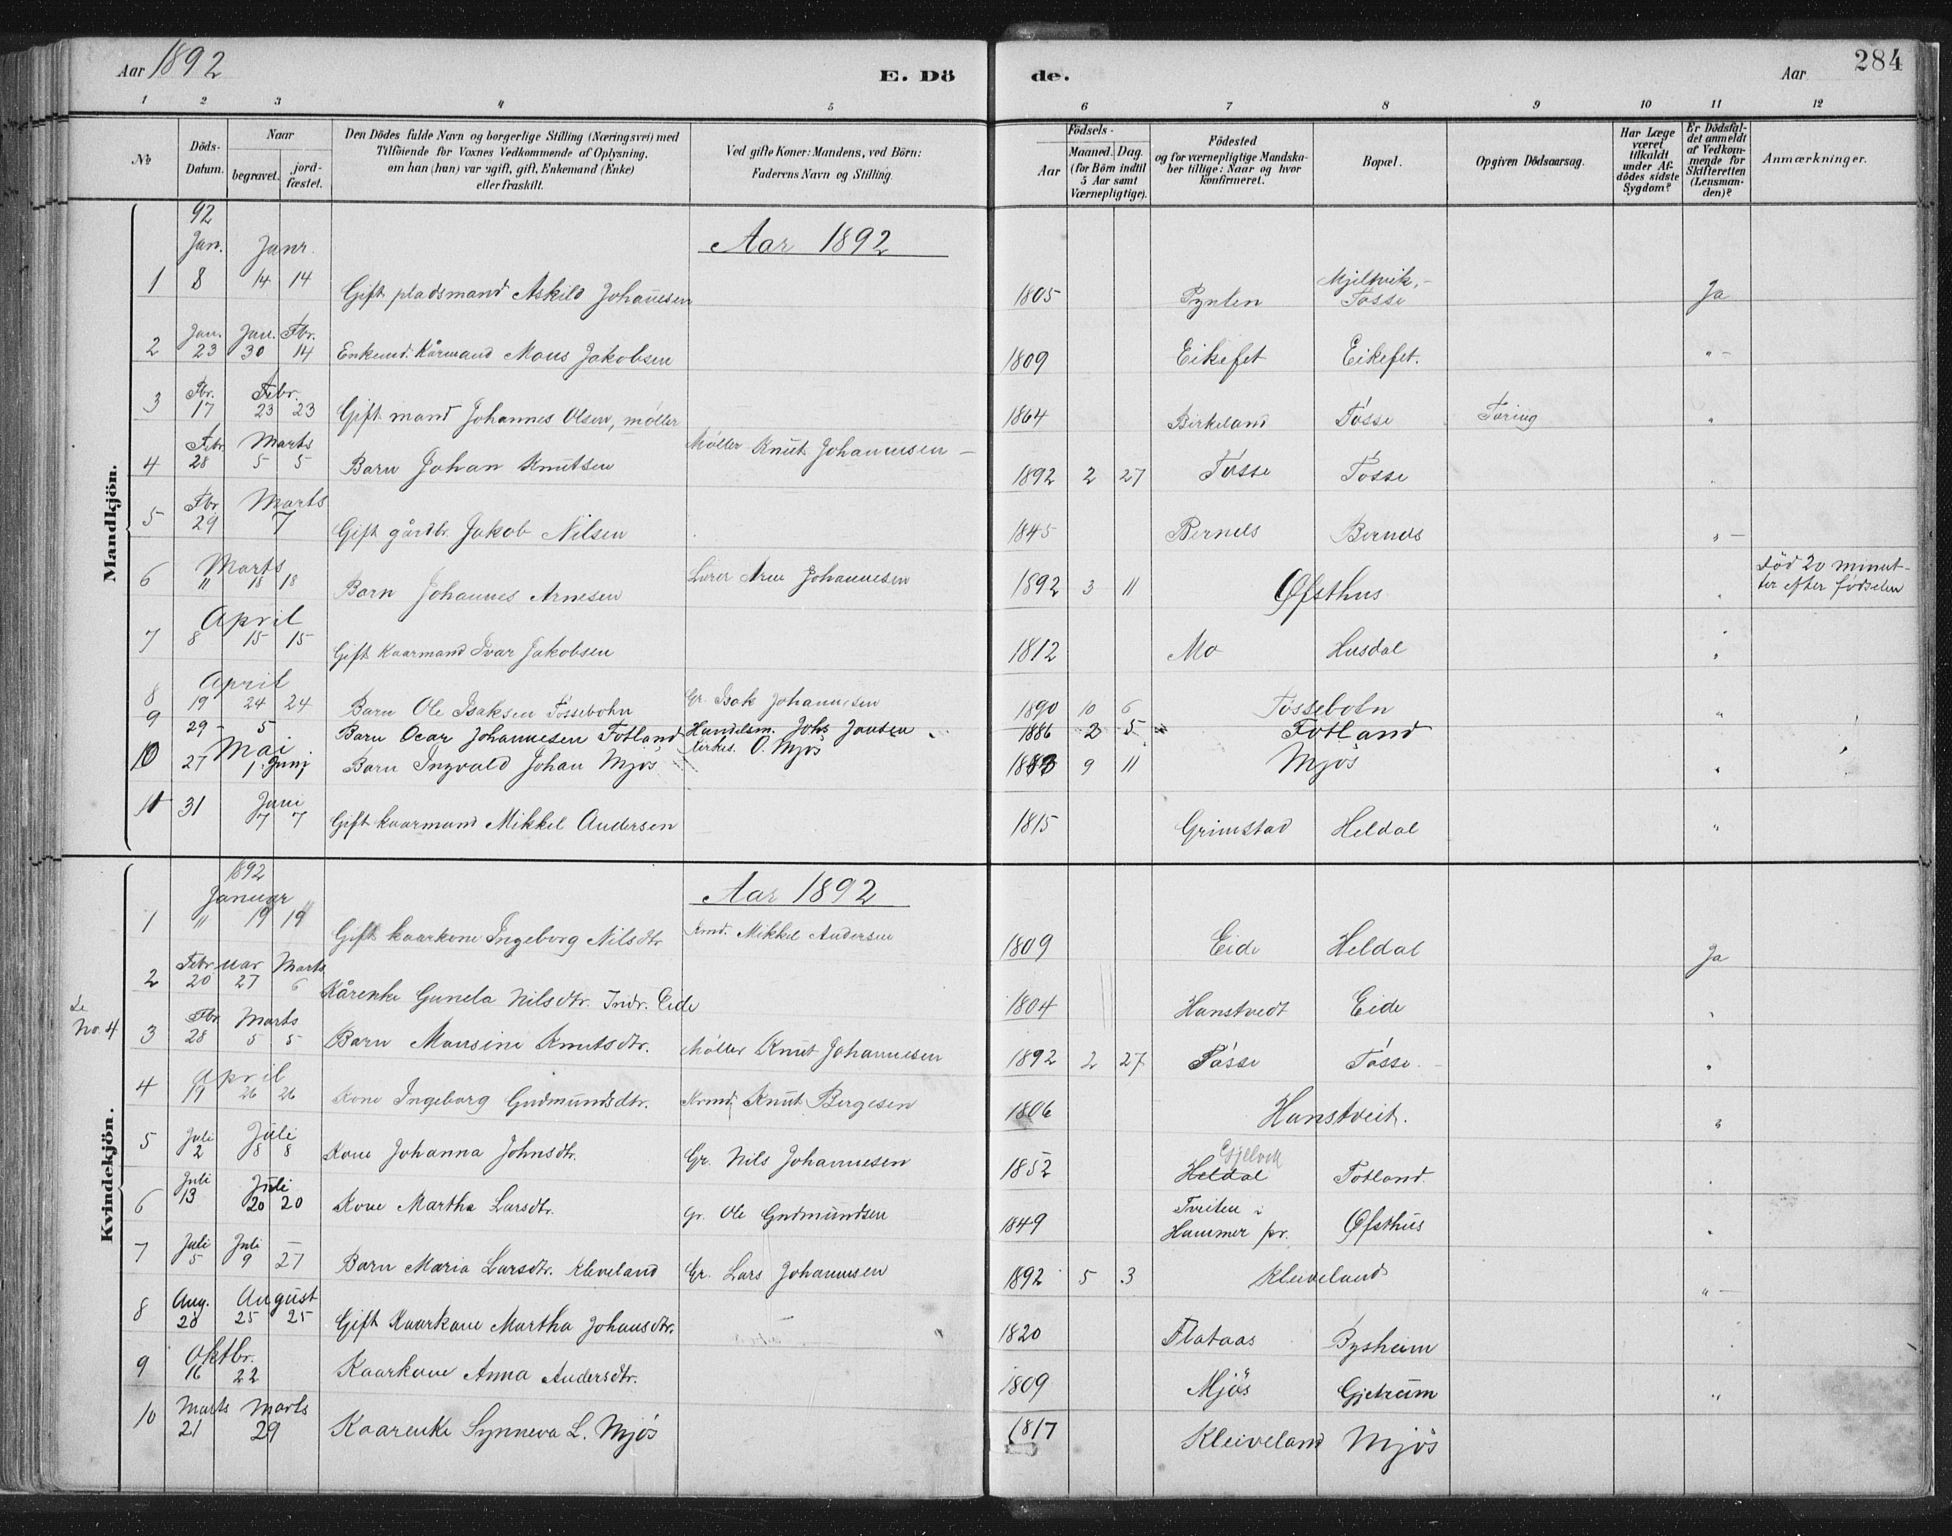 Aar 1892 E. Dö de. Aar 284
1 2 3 4 5 6 7 8 9 10 11 12
№ Döds-Datum. Naar begravet. jordfæstet. Den Dödes fulde Navn og borgerlige Stilling (Næringsvei) med Tilföiende for Voxnes Vedkommende af Oplysning, om han (hun) var ugift, gift, Enkemand (Enke) eller fraskilt. Ved gifte Koner: Mandens, ved Börn: Faderens Navn og Stilling. Födsels- Aar Maaned. Dag. (for Börn indtil 5 Aar samt Værnepligtige). Födested og for værnepligtige Mandskaber tillige: Naar og hvor konfirmeret. Bopæl. Opgiven Dödsaarsag. Har Læge været tilkaldt under Afdödes sidste Sygdom? Er Dödsfaldet anmeldt af Vedkommende for Skifteretten (Lensmanden)? Anmærkninger.
Mandkjön.
92
Jan. Janr. Aar 1892
1 8 14 14 Gift pladsmand Askild Johannesen 1805 Pynten Mjeltvik, Tosse Ja
2 Jan. 23 Jan. 30 Fbr. 14 Enkemd. Kårmand Mons Jakobsen 1809 Eikefet Eikefet. "
3 Fbr. 17 Febr. 23 23 Gift mand Johannes Olsen, møller 1864 Birkeland Tosse Tæring "
4 Febr. 28 Marts 5 5 Barn Johan Knutsen Møller Knut Johannesen 1892 2 27 Tosse Tosse "
5 Fbr. 29 Marts 7 Gift gårdbr. Jakob Nilsen 1845 Bernels Bernes "
6 Marts 11 18 18 Barn Johannes Arnesen Lærer Arne Johannesen 1892 3 11 Øfsthus " død 20 minutter efter fødselen
7 April 8 15 15 Gift Kaarmand Ivar Jakobsen 1812 Mo Husdal "
8 April 19 24 24 Barn Ole Isaksen Tossebotn Gr. Isak Johannesen 1890 10 6 Tossebotn "
9 29 5 Barn Ocar Johannesen Fotland Handelsm. Johs Jansen 1886 2 5 Fotland
10 Mai 27 1 Juni Barn Ingvald Johan Mjøs Kirkes. O. Mjøs 1883 9 11 Mjøs "
11 31 Juni 7 7 Gift kaarmand Mikkel Andersen 1815 Grimstad Heldal "
Kvindekjön.
1892
Januar Aar 1892
1 11 19 19 Gift kaarkone Ingeborg Nilsdtr Krmd. Mikkel Andersen 1809 Eide Heldal Ja
2 Februar 20 27 Marts 6 Kårenke Gunela Nilsdtr. Indr. Eide 1804 Hanstvedt Eide "
Se No. 4 3 Fbr 28 Marts 5 5 Barn Monsine Knutsdtr. Møller Knut Johannesen 1892 2 27 Tosse Tosse "
4 April 19 26 26 Kone Ingeborg Gudmundsdtr. Krmd. Knut Birgesen 1806 Hanstveit. "
5 Juli 2 Juli 8 8 Kone Johanna Johnsdtr. Gr. Nils Johannesen 1852 Heldal Gjelvik Fotland "
6 Juli 13 Juli 20 20 Kone Martha Larsdtr. Gr. Ole Gudmundsen 1849 Tveiten i Hammer pr. Øfsthus "
7 Juli 5 Juli 9 27 Barn Maria Larsdtr. Kleiveland Gr. Lars Johannesen 1892 5 3 Kleiveland "
8 Aug. 20 August 25 25 Gift Kaarkone Martha Johansdtr. 1820 Flataas Bysheim
9 Oktbr. 16 22 Kaarkone Anna Andersdtr. 1809 Mjøs Gjetrum "
10 Marts 21 Marts 29 Kaarenke Synneva L. Mjøs 1817 Kleiveland Mjøs